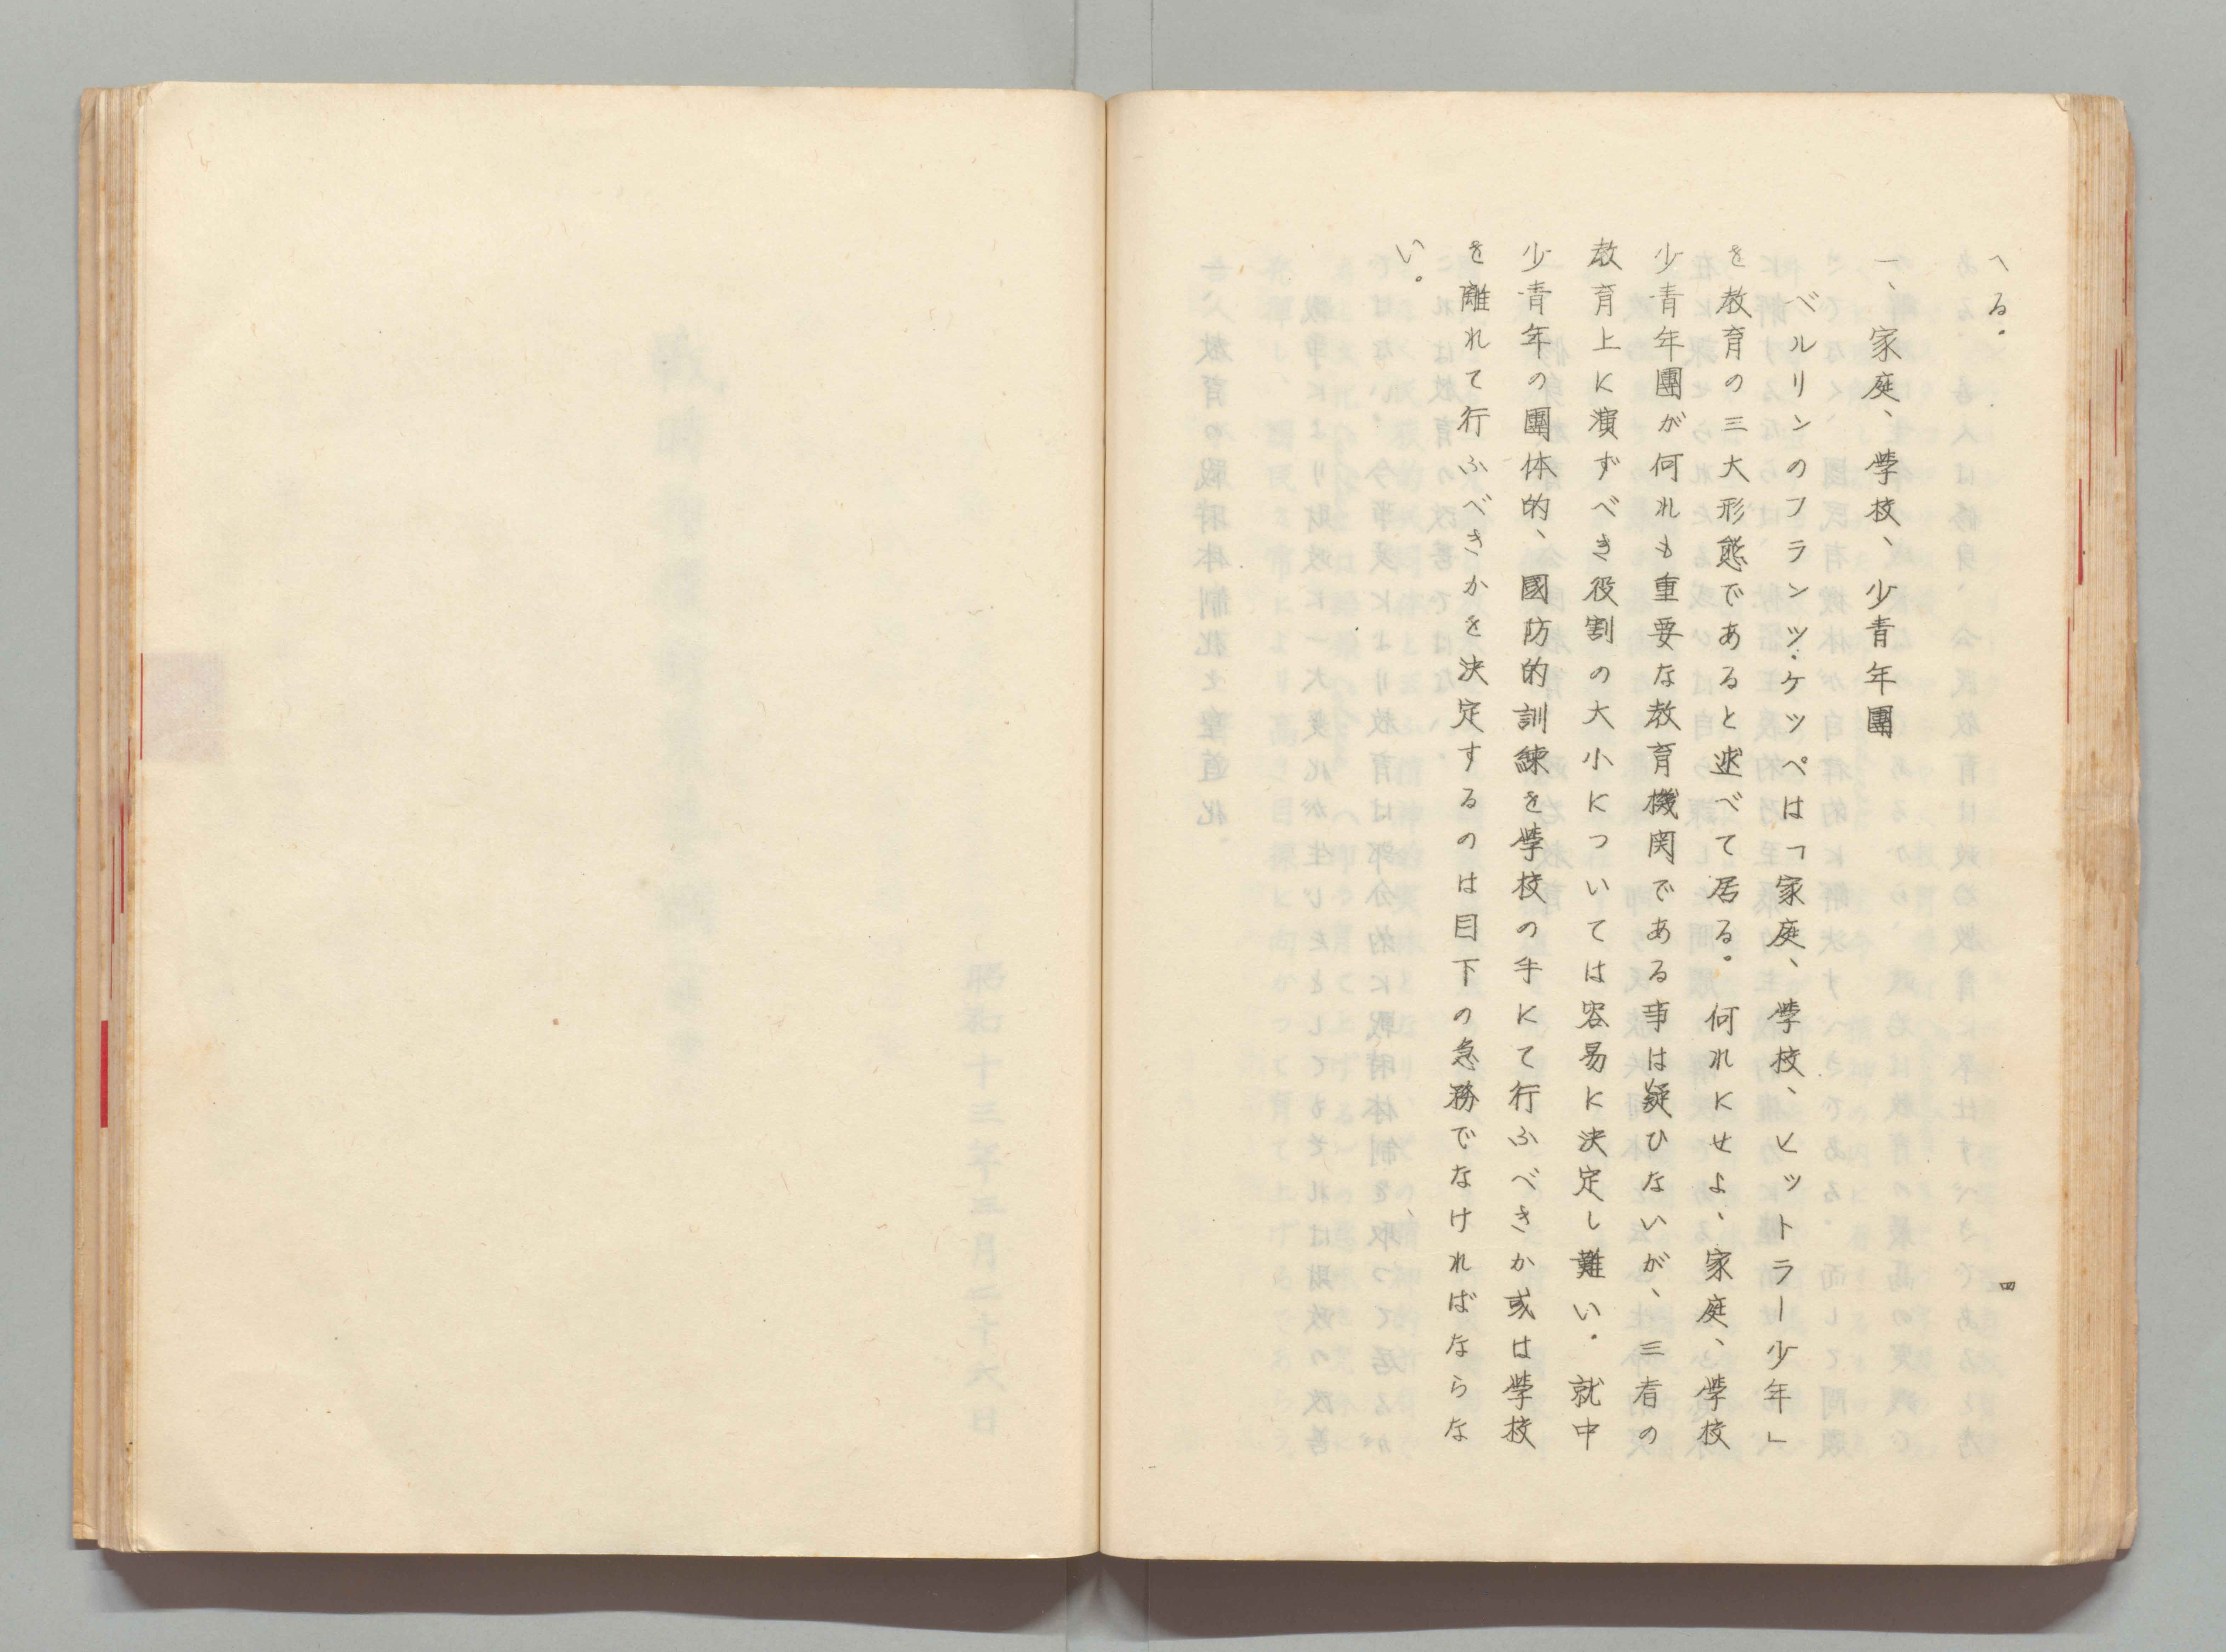 へる。
一、家庭、学校、少青年團
ベルリンのフランツ・ケッペは「家庭、学校、ヒットラー少年」
を教育の三大形態であると述べて居る。何れにせよ、家庭、学校
少青年團が何れも重要な教育機関である事は疑ひないが、三者の
教育上に演ずべき役割の大小については容易に決定し難い。就中
少青年の團体的、國防的訓練を学校の手にて行ふべきか或は学校
を離れて行ふべきかを決定するのは目下の急務でなければならな
い。
四